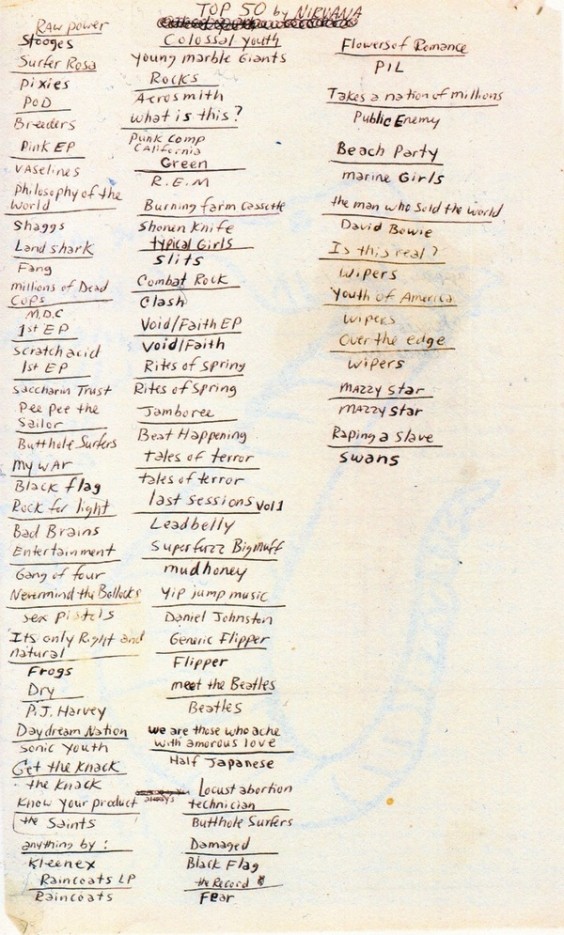 TOP 50 by NIRVANA
Raw power
Stooges
Surfer Rosa
Pixies
PoD
Breeders
Pink EP
vaselines
Philosophy of the
World
Shaggs
Land shark
Fang
millions of Dead
Cops
M.D.C
1st EP
Scratch acid
1st EP
Saccharin Trust
Pee Pee the
Sailor
Butthole Surfers
My war
Black flag
Rock for light
Bad Brains
Entertainment
Gang of four
Nevermind the Bollocks
sex pistols
Its only Right and
natural
Frogs
Dry
P.J. Harvey
Daydream Nation
Sonic Youth
Get the Knack
the Knack
Know your product
the Saints
anything by :
Kleenex
Raincoats LP
Raincoats
Colossal youth
young marble Giants
Rocks
Aerosmith
What is this?
Punk Comp
California
Green
R.E.M
Burning farm Cassette
Shonen Knife
typical Girls
Slits
Combat Rock
Clash
Void/Faith EP
Void/Faith
Rites of Spring
Rites of Spring
Jamboree
Beat Happening
tales of terror
tales of terror
last sessions Vol 1
Leadbelly
Superfuzz Bigmuff
mudhoney
Yip jump music
Daniel Johnston
Generic Flipper
Flipper
meet the Beatles
Beatles
we are those who ache
with amorous love
Half Japanese
Locust abortion
technician
Butthole Surfers
Damaged
Black Flag
the Record
Fear
Flowers of Romance
PIL
Takes a nation of millions
Public Enemy
Beach Party
marine Girls
the man who Sold the World
David Bowie
Is this real?
wipers
Youth of America
wipers
Over the edge
wipers
mazzy star
mazzy star
Raping a Slave
Swans